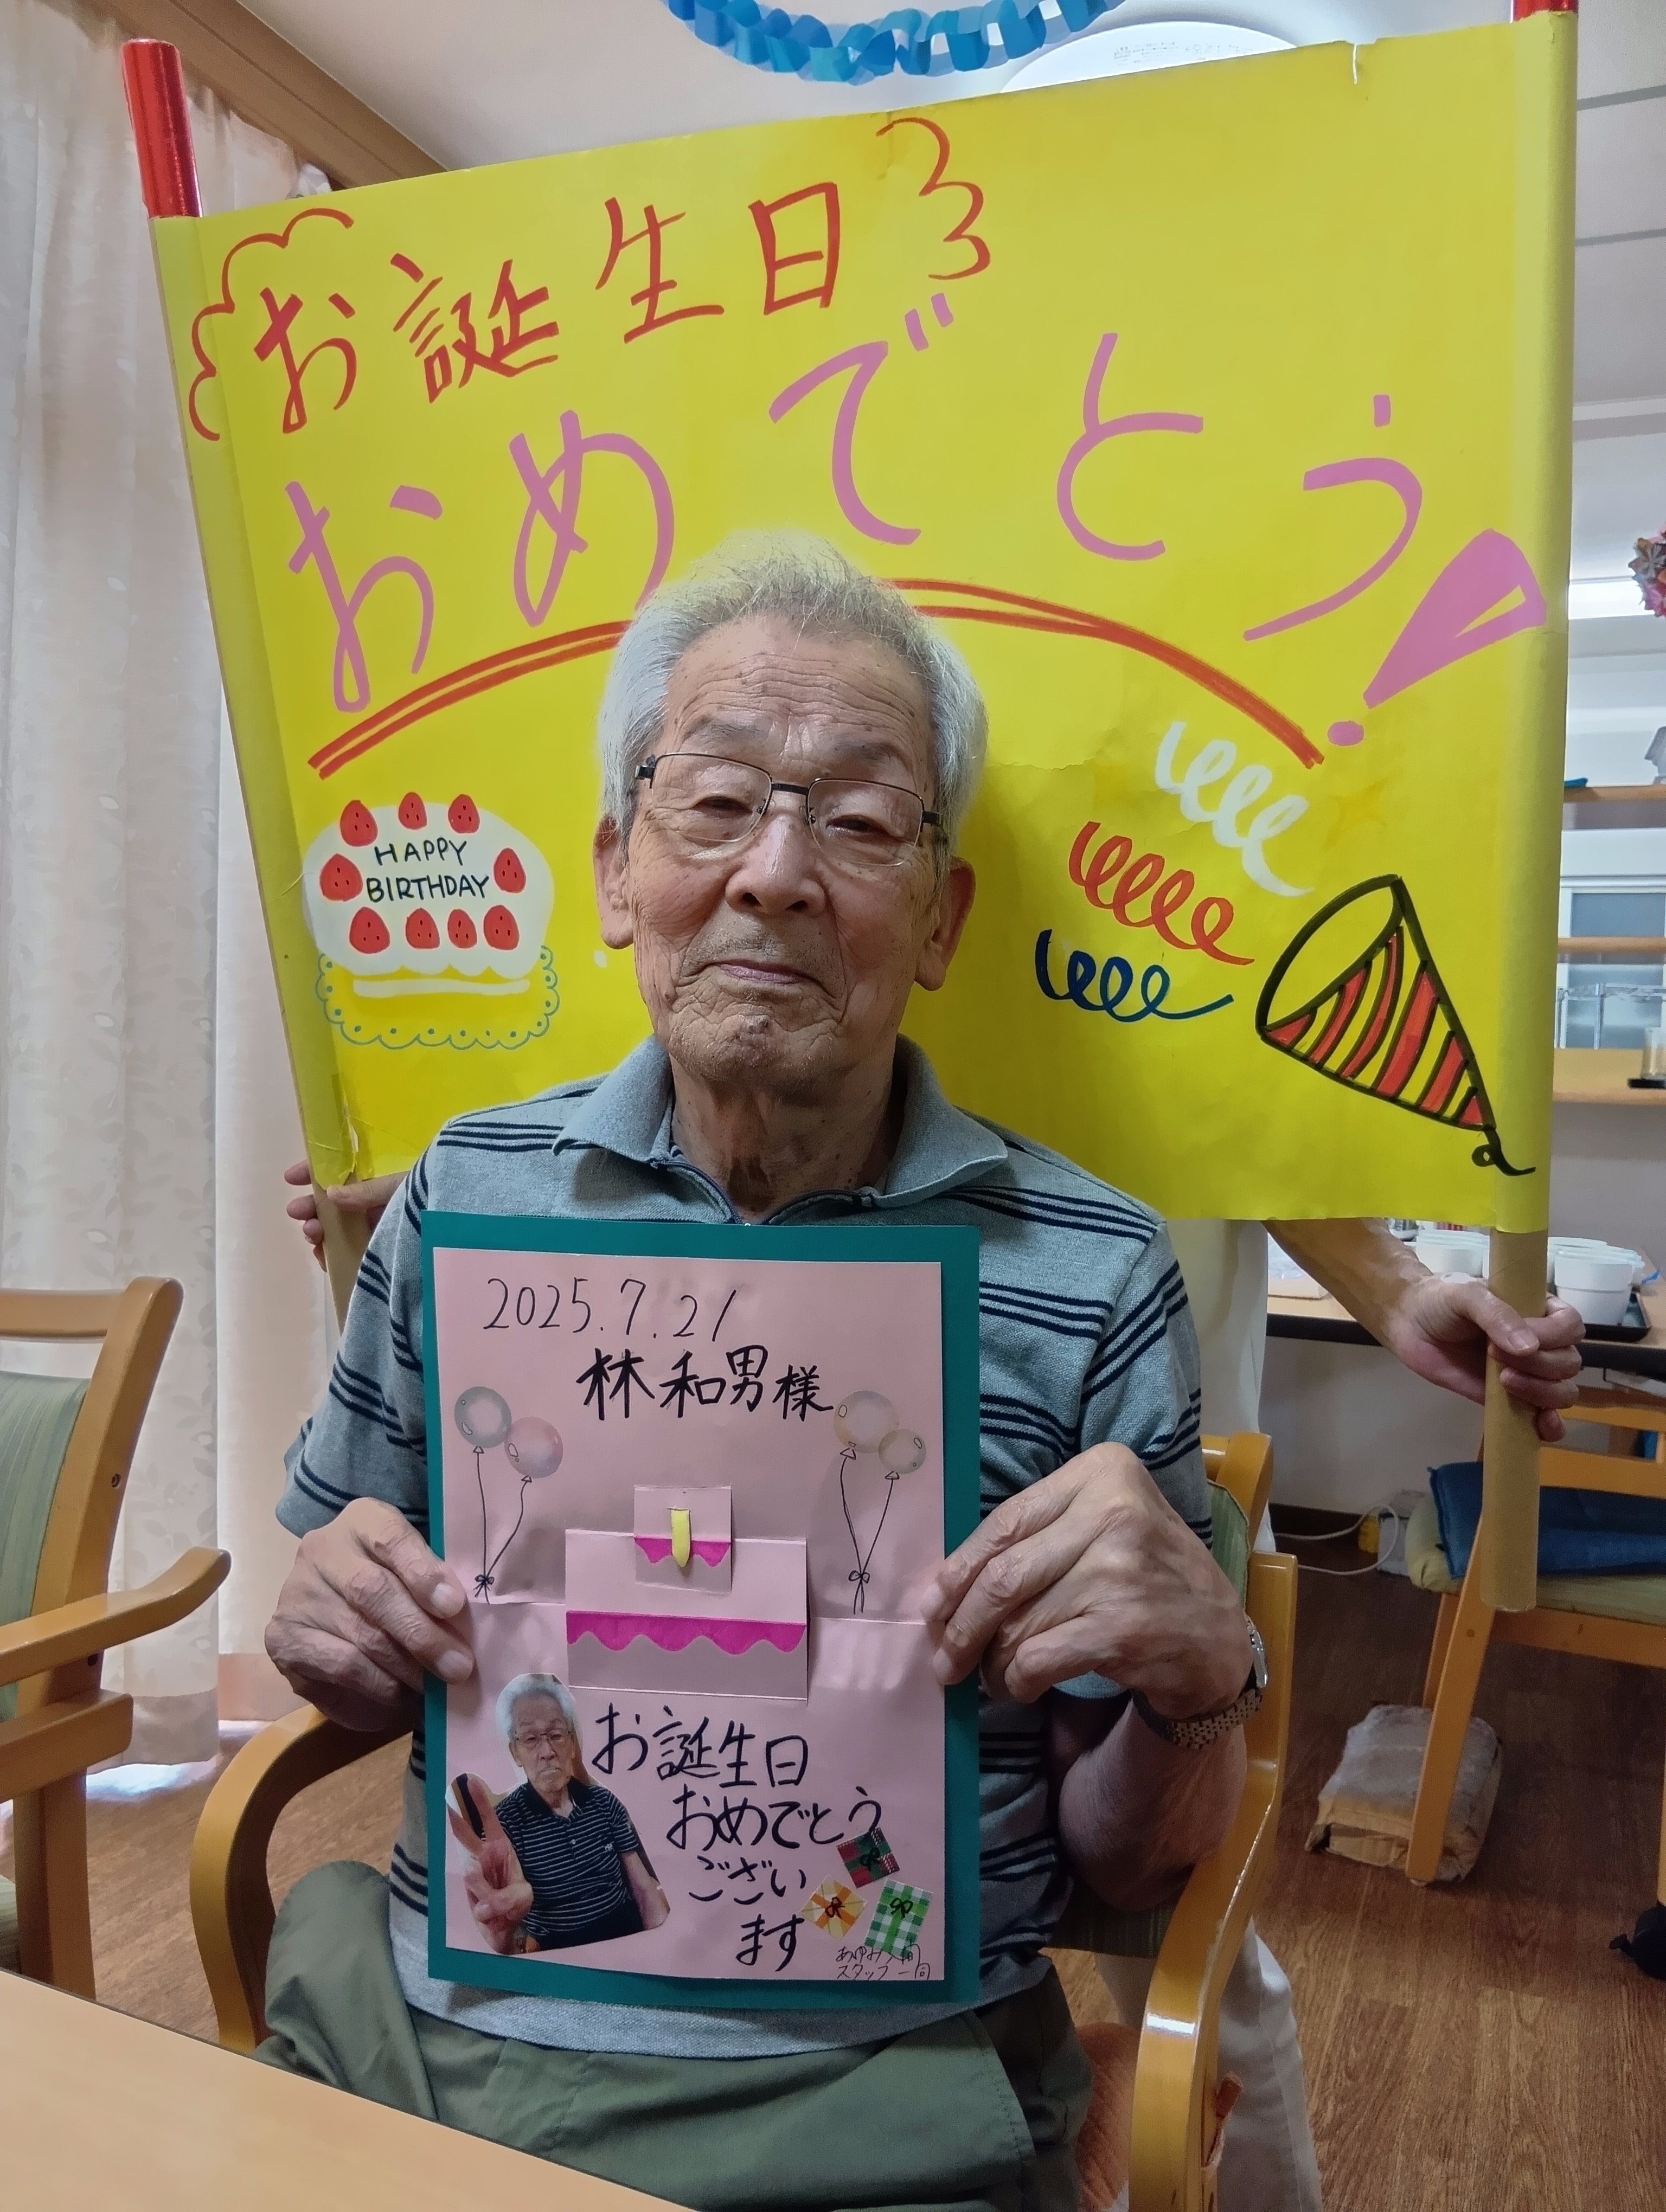 お誕生日
おめでとう!
HAPPY
BIRTHDAY
2025.7.21
林和男様
お誕生日
おめでとう
ござい
ます
スタッフ一同